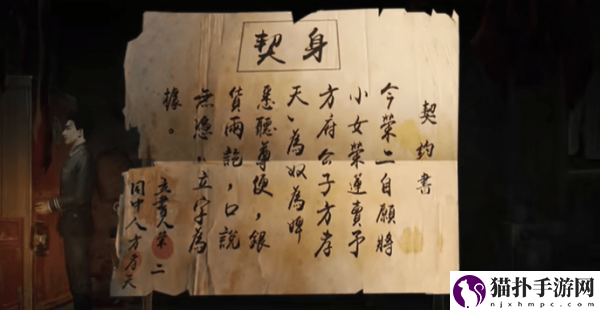 身契
契约書
今榮二自願將
小女榮蓮賣予
方府公子方孝
天,為奴為婢
悉聽尊便,銀
貨兩訖,口說
無憑,立字為
據。
立書人榮二
同中人方孝天
猫扑手游网
njxhmpc.com